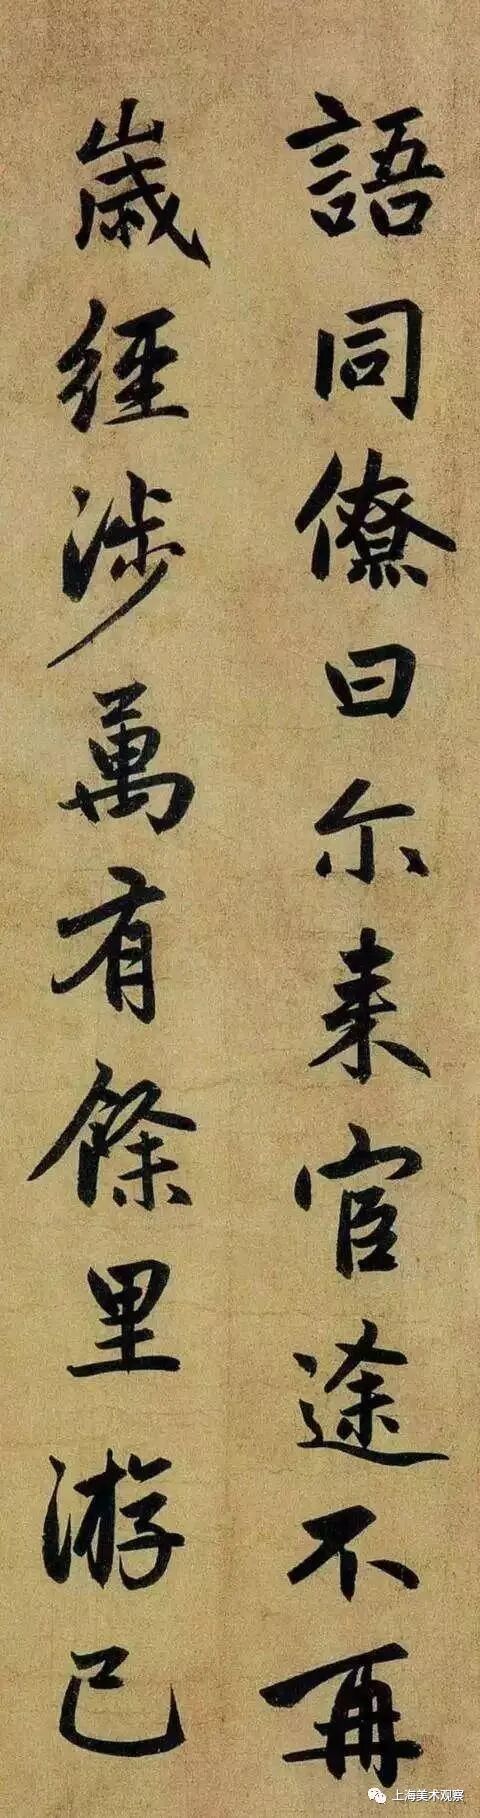 語同僚曰尔来宦途不再
歲經涉萬有餘里游已
上海美术观察